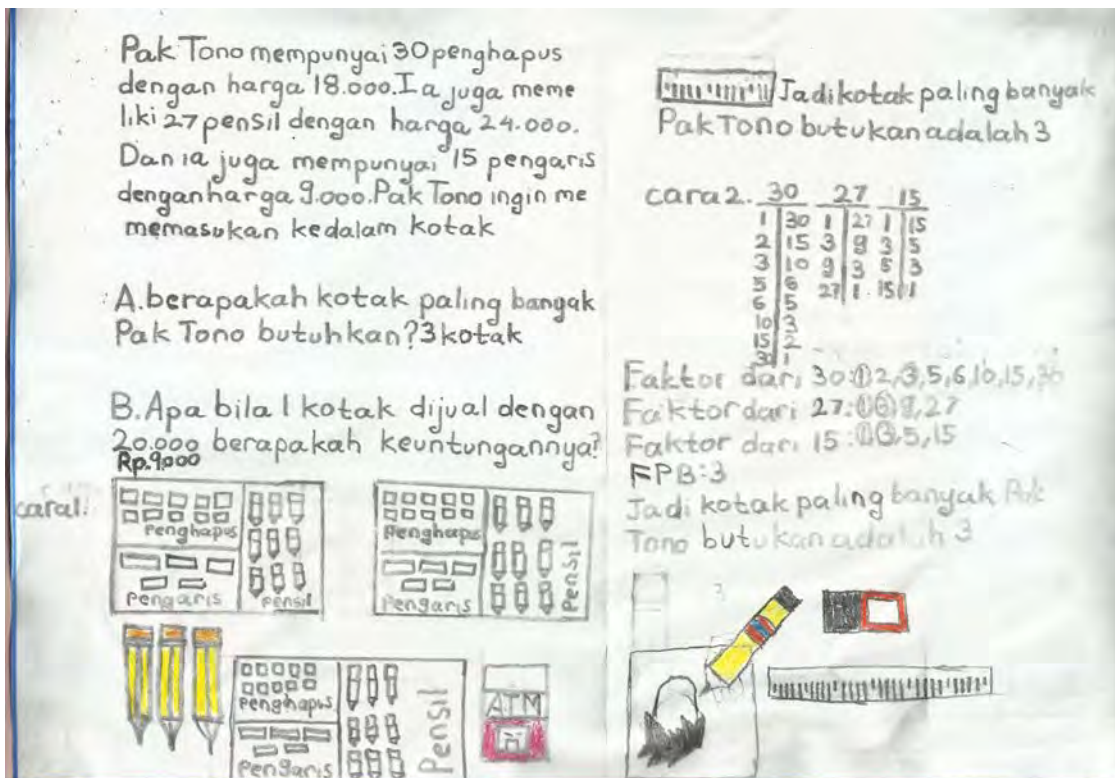 Pak Tono mempunyai 30 penghapus
dengan harga 18.000. Ia juga meme
liki 27 pensil dengan harga 24.000.
Dan ia juga mempunyai 15 pengaris
dengan harga 9.000. Pak Tono ingin me
memasukan kedalam kotak
A. berapakah kotak paling bangak
Pak Tono butuhkan? 3 kotak
B. Apa bila 1 kotak dijual dengan
20.000 berapakah keuntungannya?
Rp. 9.000
cara 1:
Penghapus
Pengaris
Pensil
Penghapus
Pengaris
Pensil
Penghapus
Pengaris
Pensil
ATM
Jadi kotak paling banyak
Pak Tono butukan adalah 3
cara 2. 30 27 15
1 30 1 27 1 15
2 15 3 9 3 5
3 10 9 3 5 3
5 6 27 1 15 1
6 5
10 3
15 2
30 1
Faktor dari 30: 1, 2, 3, 5, 6, 10, 15, 30
Faktor dari 27: 1, 3, 9, 27
Faktor dari 15: 1, 3, 5, 15
FPB: 3
Jadi kotak paling banyak Pak
Tono butukan adalah 3
3